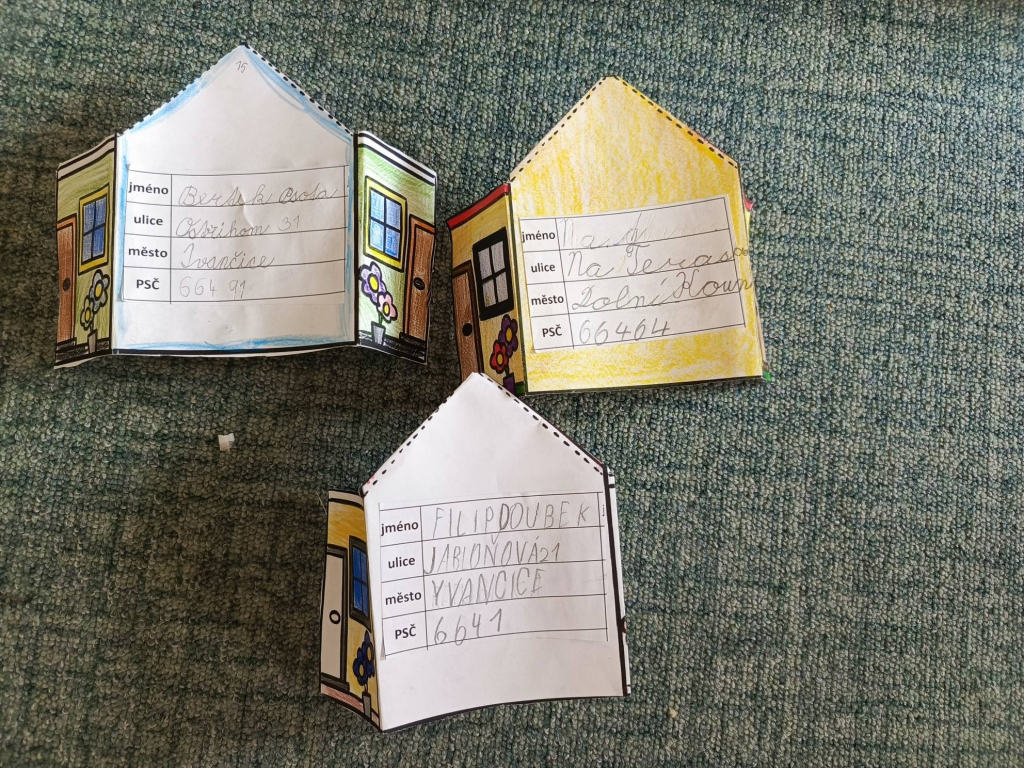 15
jméno
ulice 31
město Ivančice
PSČ 664 91
jméno
ulice Na Teras
město Dolní Koun
PSČ 66464
jméno FILIP DOUBEK
ulice JABLOŇOVÁ21
město YVANCICE
PSČ 6641